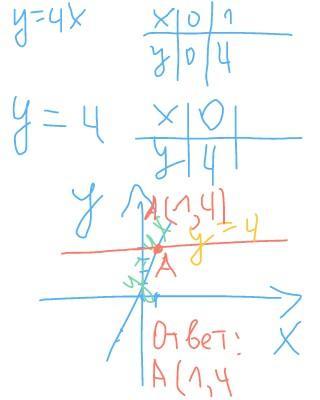 y=4x
x 0 1
y 0 4
y = 4
x 0
y 4
y
A(1,4)
y=4x
y = 4
A
1
x
Ответ:
A(1,4